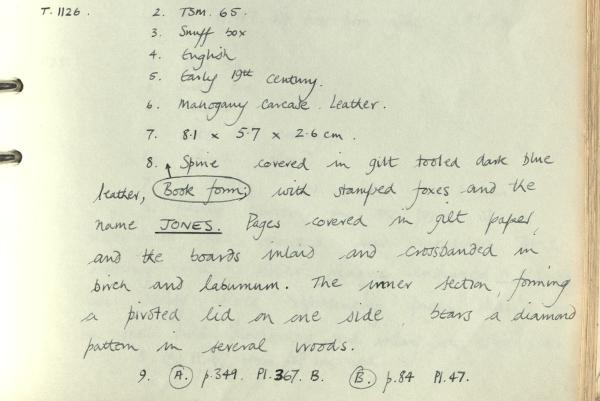 T. 1126. 2. TSM. 65.
3. Snuff box
4. English
5. Early 19th century.
6. Mahogany carcase. Leather.
7. 8.1 x 5.7 x 2.6 cm.
8. Spine covered in gilt tooled dark blue
leather, Book form; with stamped foxes and the
name JONES. Pages covered in gilt paper,
and the boards inlaid and crossbanded in
birch and laburnum. The inner section, forming
a pivoted lid on one side, bears a diamond
pattern in several woods.
9. A. p.349. Pl.367. B. B. p.84 Pl.47.